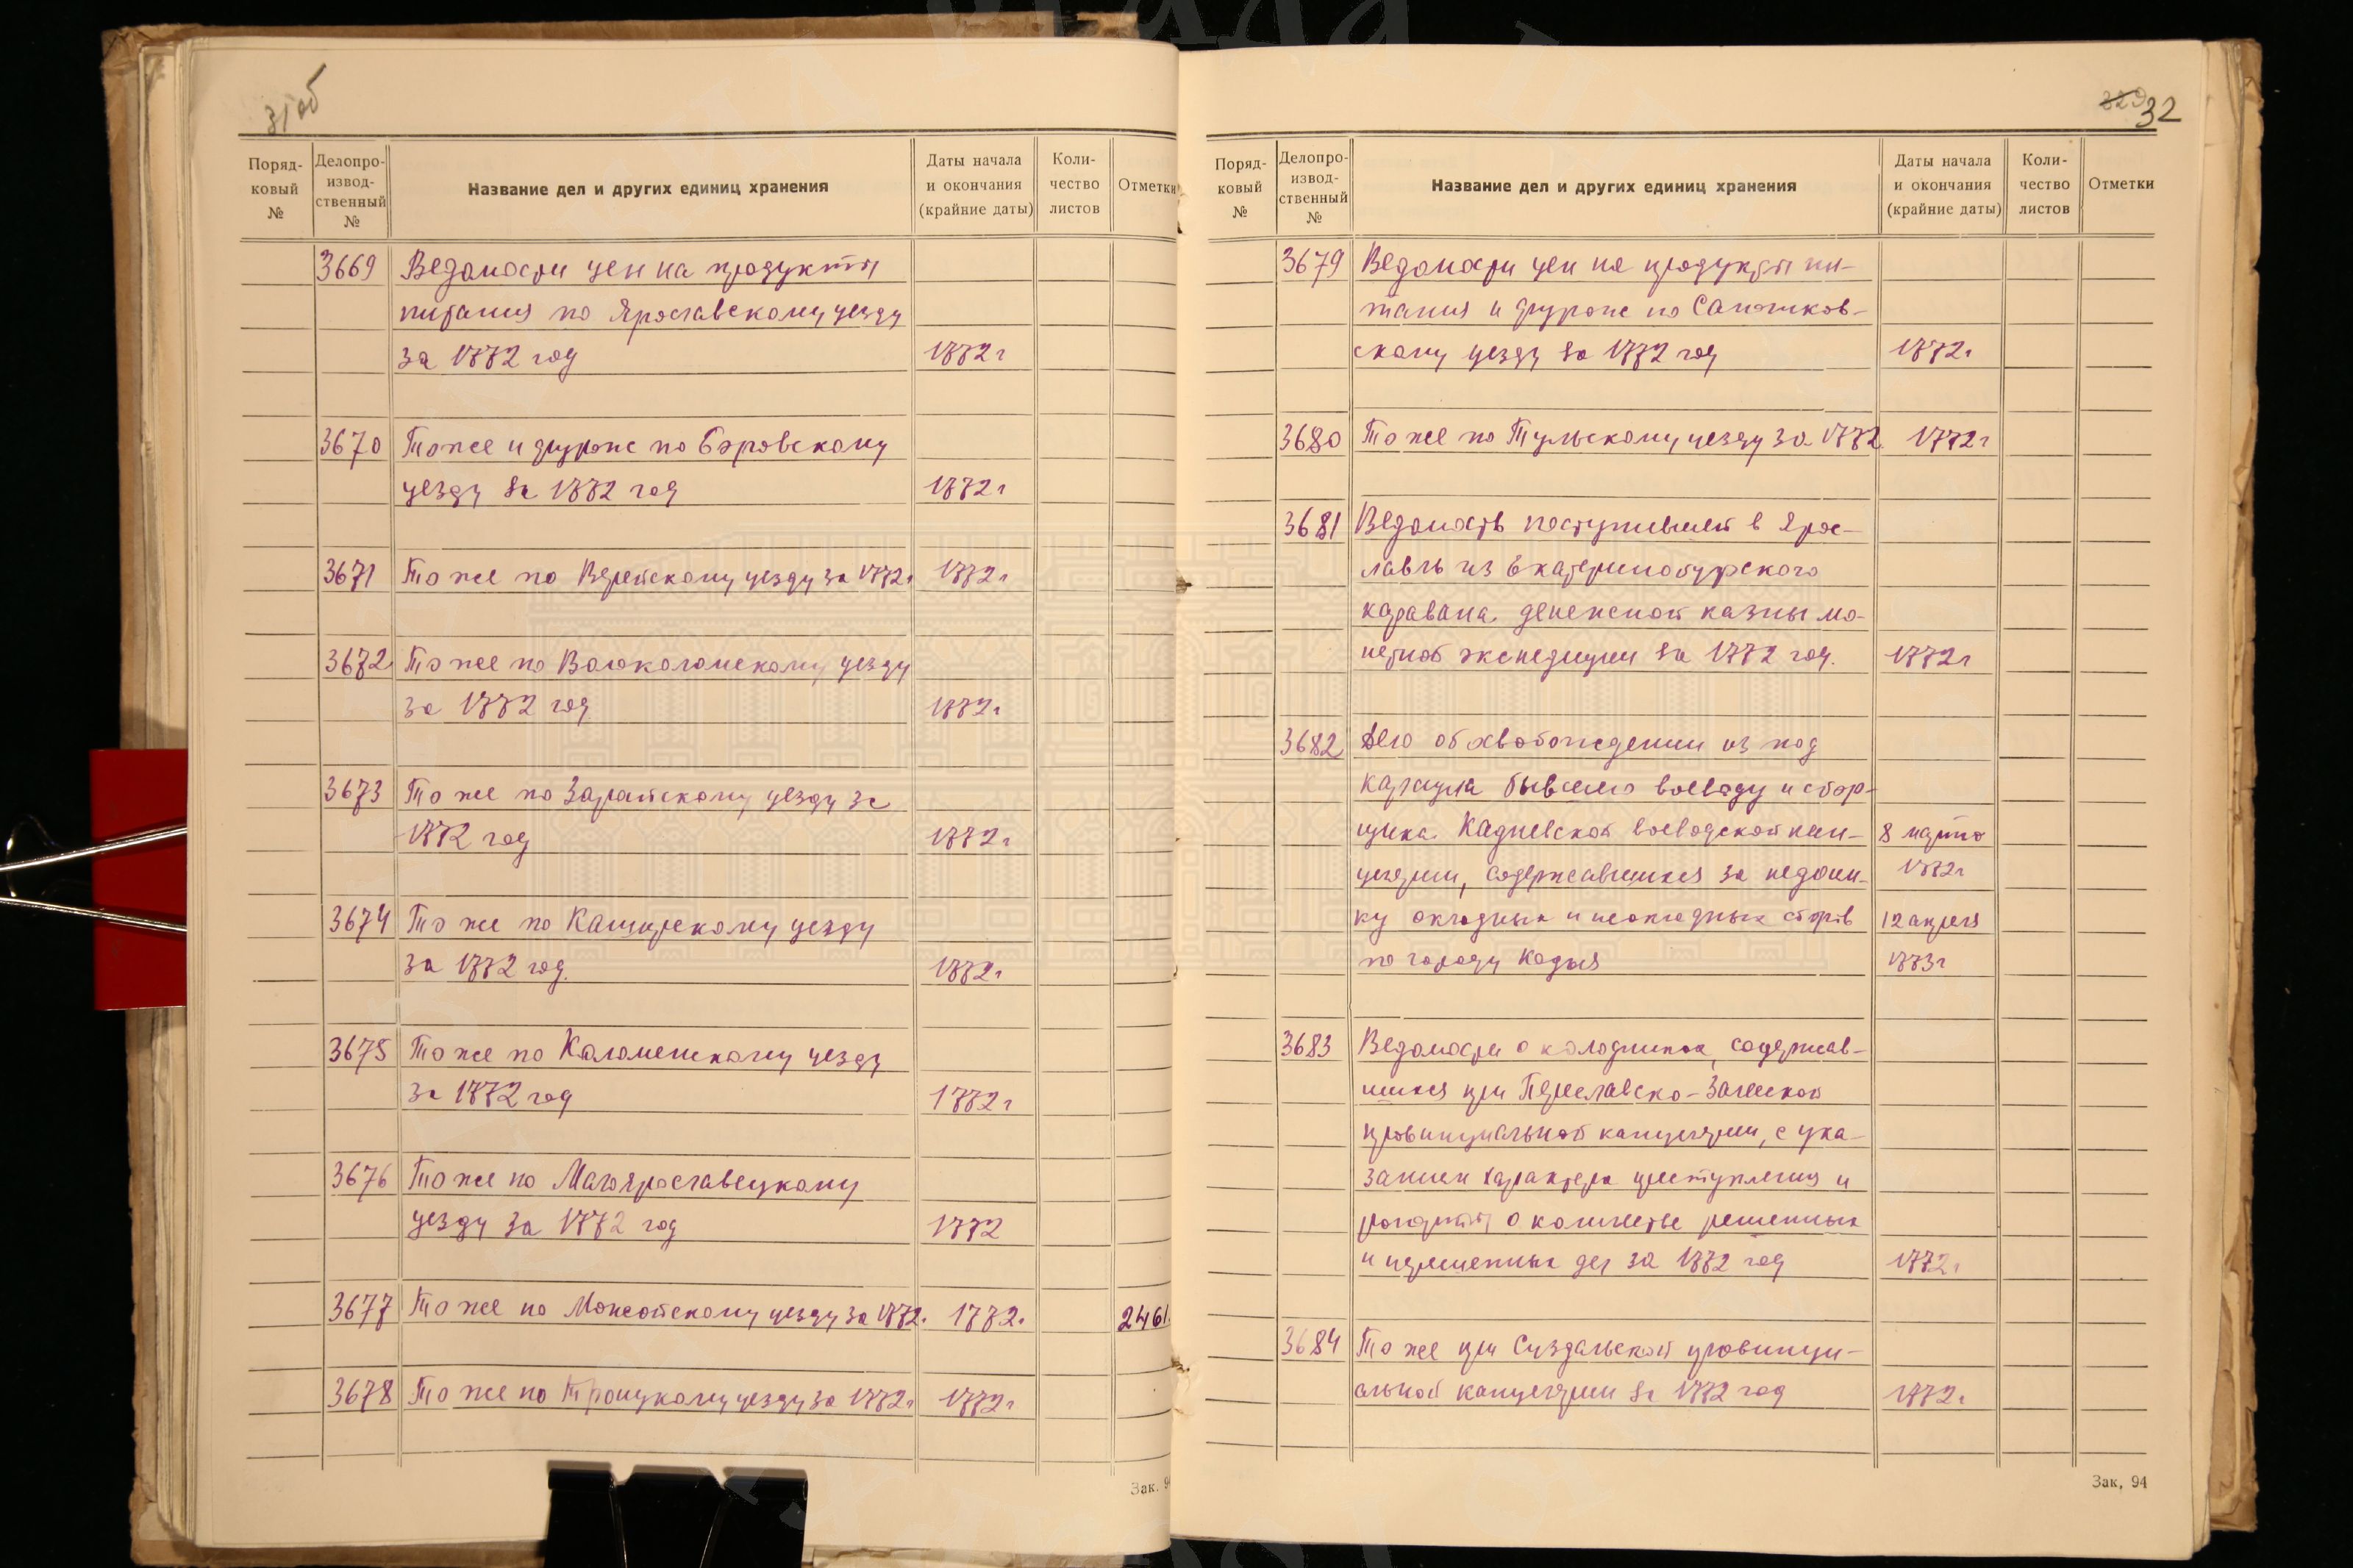 31об
Поряд-
ковый
№
Делопро-
извод-
ственный
№
Название дел и других единиц хранения
Даты начала
и окончания
(крайние даты)
Коли-
чество
листов
Отметки
3669 Ведомости цен на продукты
питания по Ярославскому уезду
за 1772 год 1772 г
3670 То же и фураже по Боровскому
уезду за 1772 год 1772 г
3671 То же по Верейскому уезду за 1772 г 1772 г
3672 То же по Волоколамскому уезду
за 1772 год 1772 г
3673 То же по Зарайскому уезду за
1772 год 1772 г
3674 То же по Каширскому уезду
за 1772 год. 1772 г
3675 То же по Коломенскому уезду
за 1772 год 1772 г
3676 То же по Малоярославецкому
уезду за 1772 год 1772
3677 То же по Можайскому уезду за 1772. 1772. 2461.
3678 То же по Троицкому уезду за 1772 г 1772 г
Зак. 9
329 32
Поряд-
ковый
№
Делопро-
извод-
ственный
№
Название дел и других единиц хранения
Даты начала
и окончания
(крайние даты)
Коли-
чество
листов
Отметки
3679 Ведомости цен на продукты пи-
тания и фураже по
скому уезду за 1772 год 1772 г
3680 То же по Тульскому уезду за 1772 1772 г
3681 Ведомость поступившей в Яро-
славль из Екатеринобургского
каравана денежной казны мо-
нетной экспедиции за 1772 год. 1772 г
3682 Дело об освобождении из под
караула бывшего воеводу и сбор-
щика Кадыевской воеводской кан- 8 марта
целярии, содержавшихся за недоим- 1772 г
ку окладных и неокладных сборов 12 апреля
по городу Кадыя 1773 г
3683 Ведомости о колодниках, содержав-
шихся при Переславско-Залесской
провинциальной канцелярии, с ука-
занием характера преступления и
рапорты о количестве решенных
и нерешенных дел за 1772 год 1772 г
3684 То же при Суздальской провинци-
альной канцелярии за 1772 год 1772 г
Зак, 94